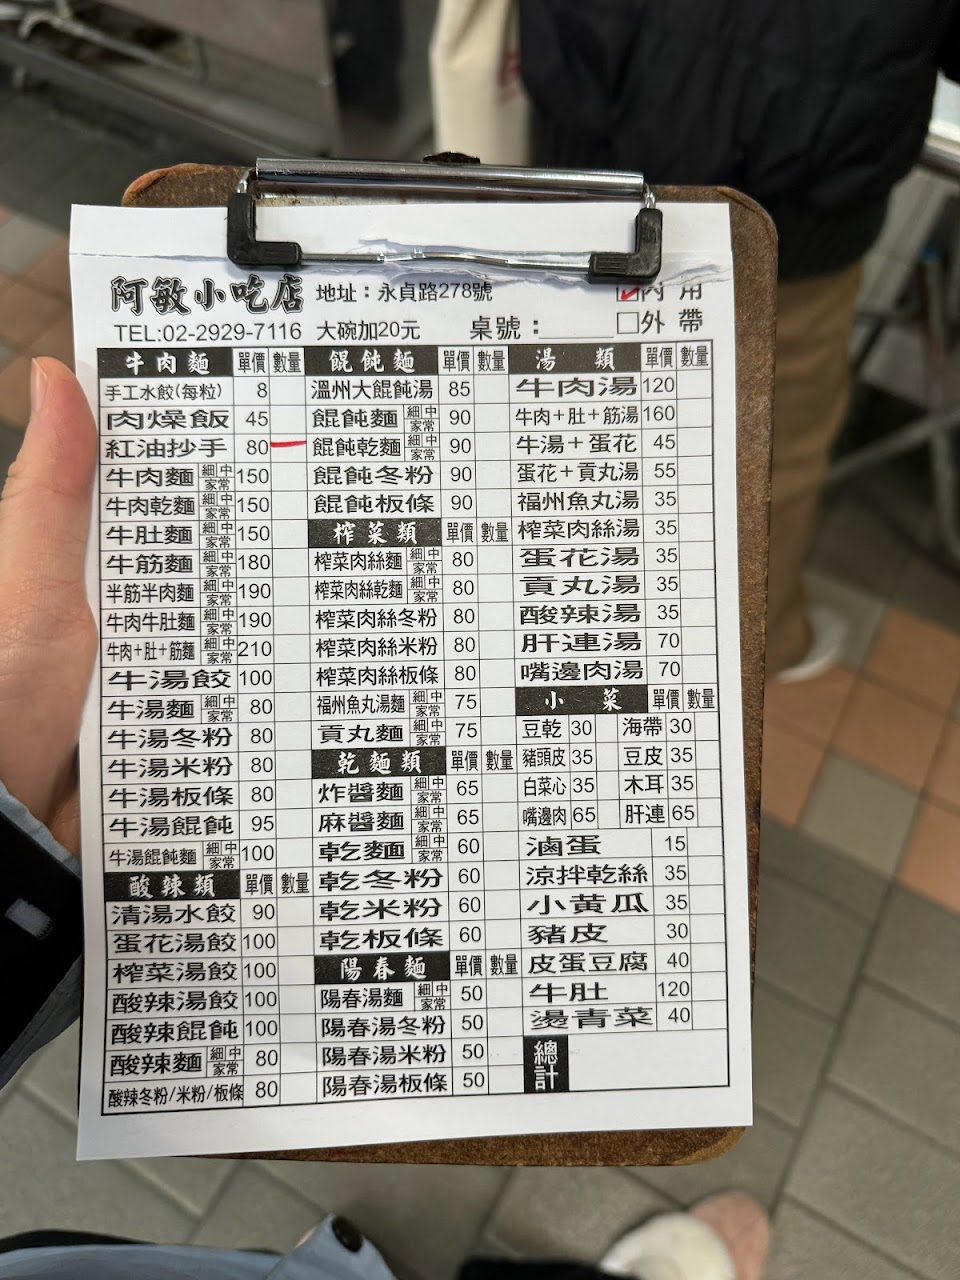 阿敏小吃店 地址：永貞路278號 ☑內用
TEL:02-2929-7116 大碗加20元 桌號：______ □外帶
牛肉麵 單價 數量
手工水餃(每粒) 8
肉燥飯 45
紅油抄手 80
牛肉麵 細 中 家常 150
牛肉乾麵 細 中 家常 150
牛肚麵 細 中 家常 150
牛筋麵 細 中 家常 180
半筋半肉麵 細 中 家常 190
牛肉牛肚麵 細 中 家常 190
牛肉+肚+筋麵 細 中 家常 210
牛湯餃 100
牛湯麵 細 中 家常 80
牛湯冬粉 80
牛湯米粉 80
牛湯板條 80
牛湯餛飩 95
牛湯餛飩麵 細 中 家常 100
酸辣類 單價 數量
清湯水餃 90
蛋花湯餃 100
榨菜湯餃 100
酸辣湯餃 100
酸辣餛飩 100
酸辣麵 細 中 家常 80
酸辣冬粉/米粉/板條 80
餛飩麵 單價 數量
溫州大餛飩湯 85
餛飩麵 細 中 家常 90
餛飩乾麵 細 中 家常 90
餛飩冬粉 90
餛飩板條 90
榨菜類 單價 數量
榨菜肉絲麵 細 中 家常 80
榨菜肉絲乾麵 細 中 家常 80
榨菜肉絲冬粉 80
榨菜肉絲米粉 80
榨菜肉絲板條 80
福州魚丸湯麵 細 中 家常 75
貢丸麵 細 中 家常 75
乾麵類 單價 數量
炸醬麵 細 中 家常 65
麻醬麵 細 中 家常 65
乾麵 細 中 家常 60
乾冬粉 60
乾米粉 60
乾板條 60
陽春麵 單價 數量
陽春湯麵 細 中 家常 50
陽春湯冬粉 50
陽春湯米粉 50
陽春湯板條 50
湯類 單價 數量
牛肉湯 120
牛肉+肚+筋湯 160
牛湯+蛋花 45
蛋花+貢丸湯 55
福州魚丸湯 35
榨菜肉絲湯 35
蛋花湯 35
貢丸湯 35
酸辣湯 35
肝連湯 70
嘴邊肉湯 70
小菜 單價 數量
豆乾 30 海帶 30
豬頭皮 35 豆皮 35
白菜心 35 木耳 35
嘴邊肉 65 肝連 65
滷蛋 15
涼拌乾絲 35
小黃瓜 35
豬皮 30
皮蛋豆腐 40
牛肚 120
燙青菜 40
總計